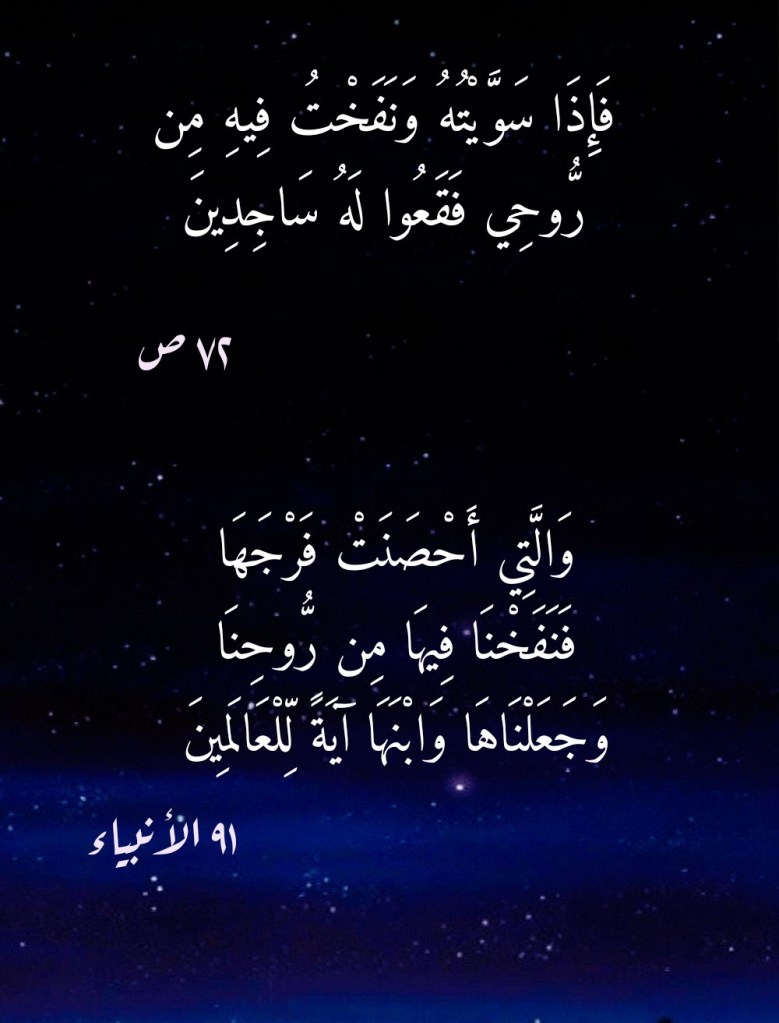 فَإِذَا سَوَّيْتُهُ وَنَفَخْتُ فِيهِ مِن
رُّوحِي فَقَعُوا لَهُ سَاجِدِينَ
٧٢ ص
وَالَّتِي أَحْصَنَتْ فَرْجَهَا
فَنَفَخْنَا فِيهَا مِن رُّوحِنَا
وَجَعَلْنَاهَا وَابْنَهَا آيَةً لِّلْعَالَمِينَ
٩١ الأنبياء